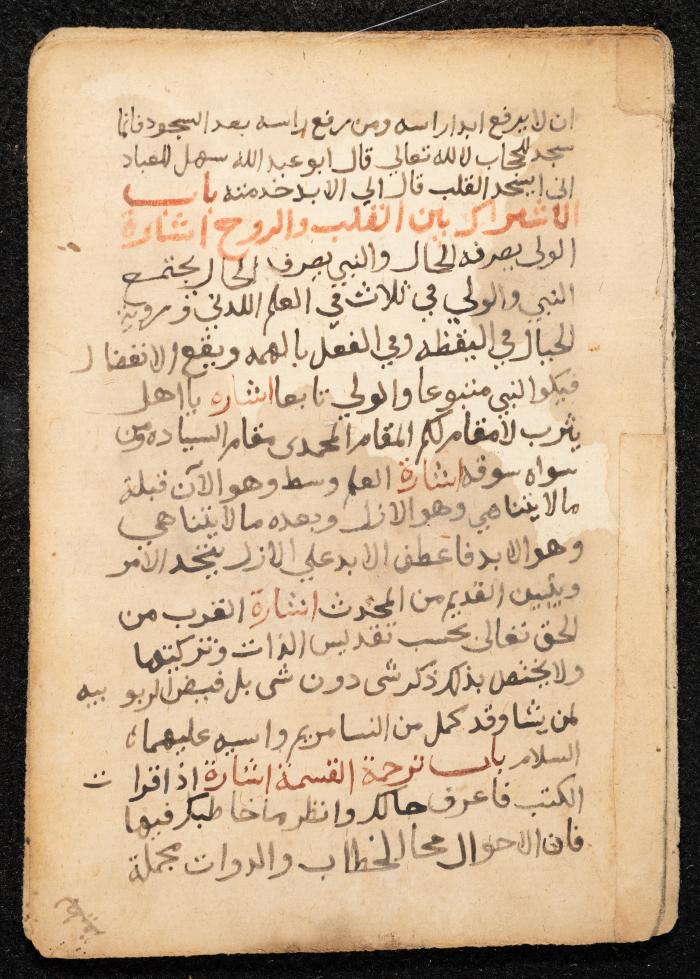 ان لا يرفع ابدا راسه ومن رفع راسه بعد السجود فانما
سجد للحجاب لا لله تعالى قال ابو عبد الله سهل للعباد
اني ايسجد القلب قال الي الابد خدمته باب
الاشتراك بين القلب والروح اشارة
الولي يصرفه الحال والنبي يصرف الحال يجتمع
النبي والولي في ثلاث في العلم اللدني وروية
الخيال في اليقظه وفي الفعل بالهمه ويقع الانفصال
فيكو النبي متبوعا والولي تابعا اشاره يا اهل
يثرب لا مقام لكم المقام المحمدى مقام السياده ومن
سواه سوقه اشارة العلم وسط وهو الآن قبلة
ما لا يتناهي وهو الازل وبعده ما لا يتناهي
وهو الابد فاعطف الابد علي الازل يتحد الامر
ويتبين القديم من المحدث اشارة القرب من
الحق تعالى بحسب تقديس الذات وتزكيتها
ولا يختص بذلك ذكر شى دون شى بل فيض الربوبيه
لمن يشا وقد كمل من النسا مريم واسيه عليهما
السلام باب ترجمة القسمة اشارة اذا قرات
الكتب فاعرف حالك وانظر ما خاطبك فيها
فان الاحوال محال الخطاب والدوات مجملة